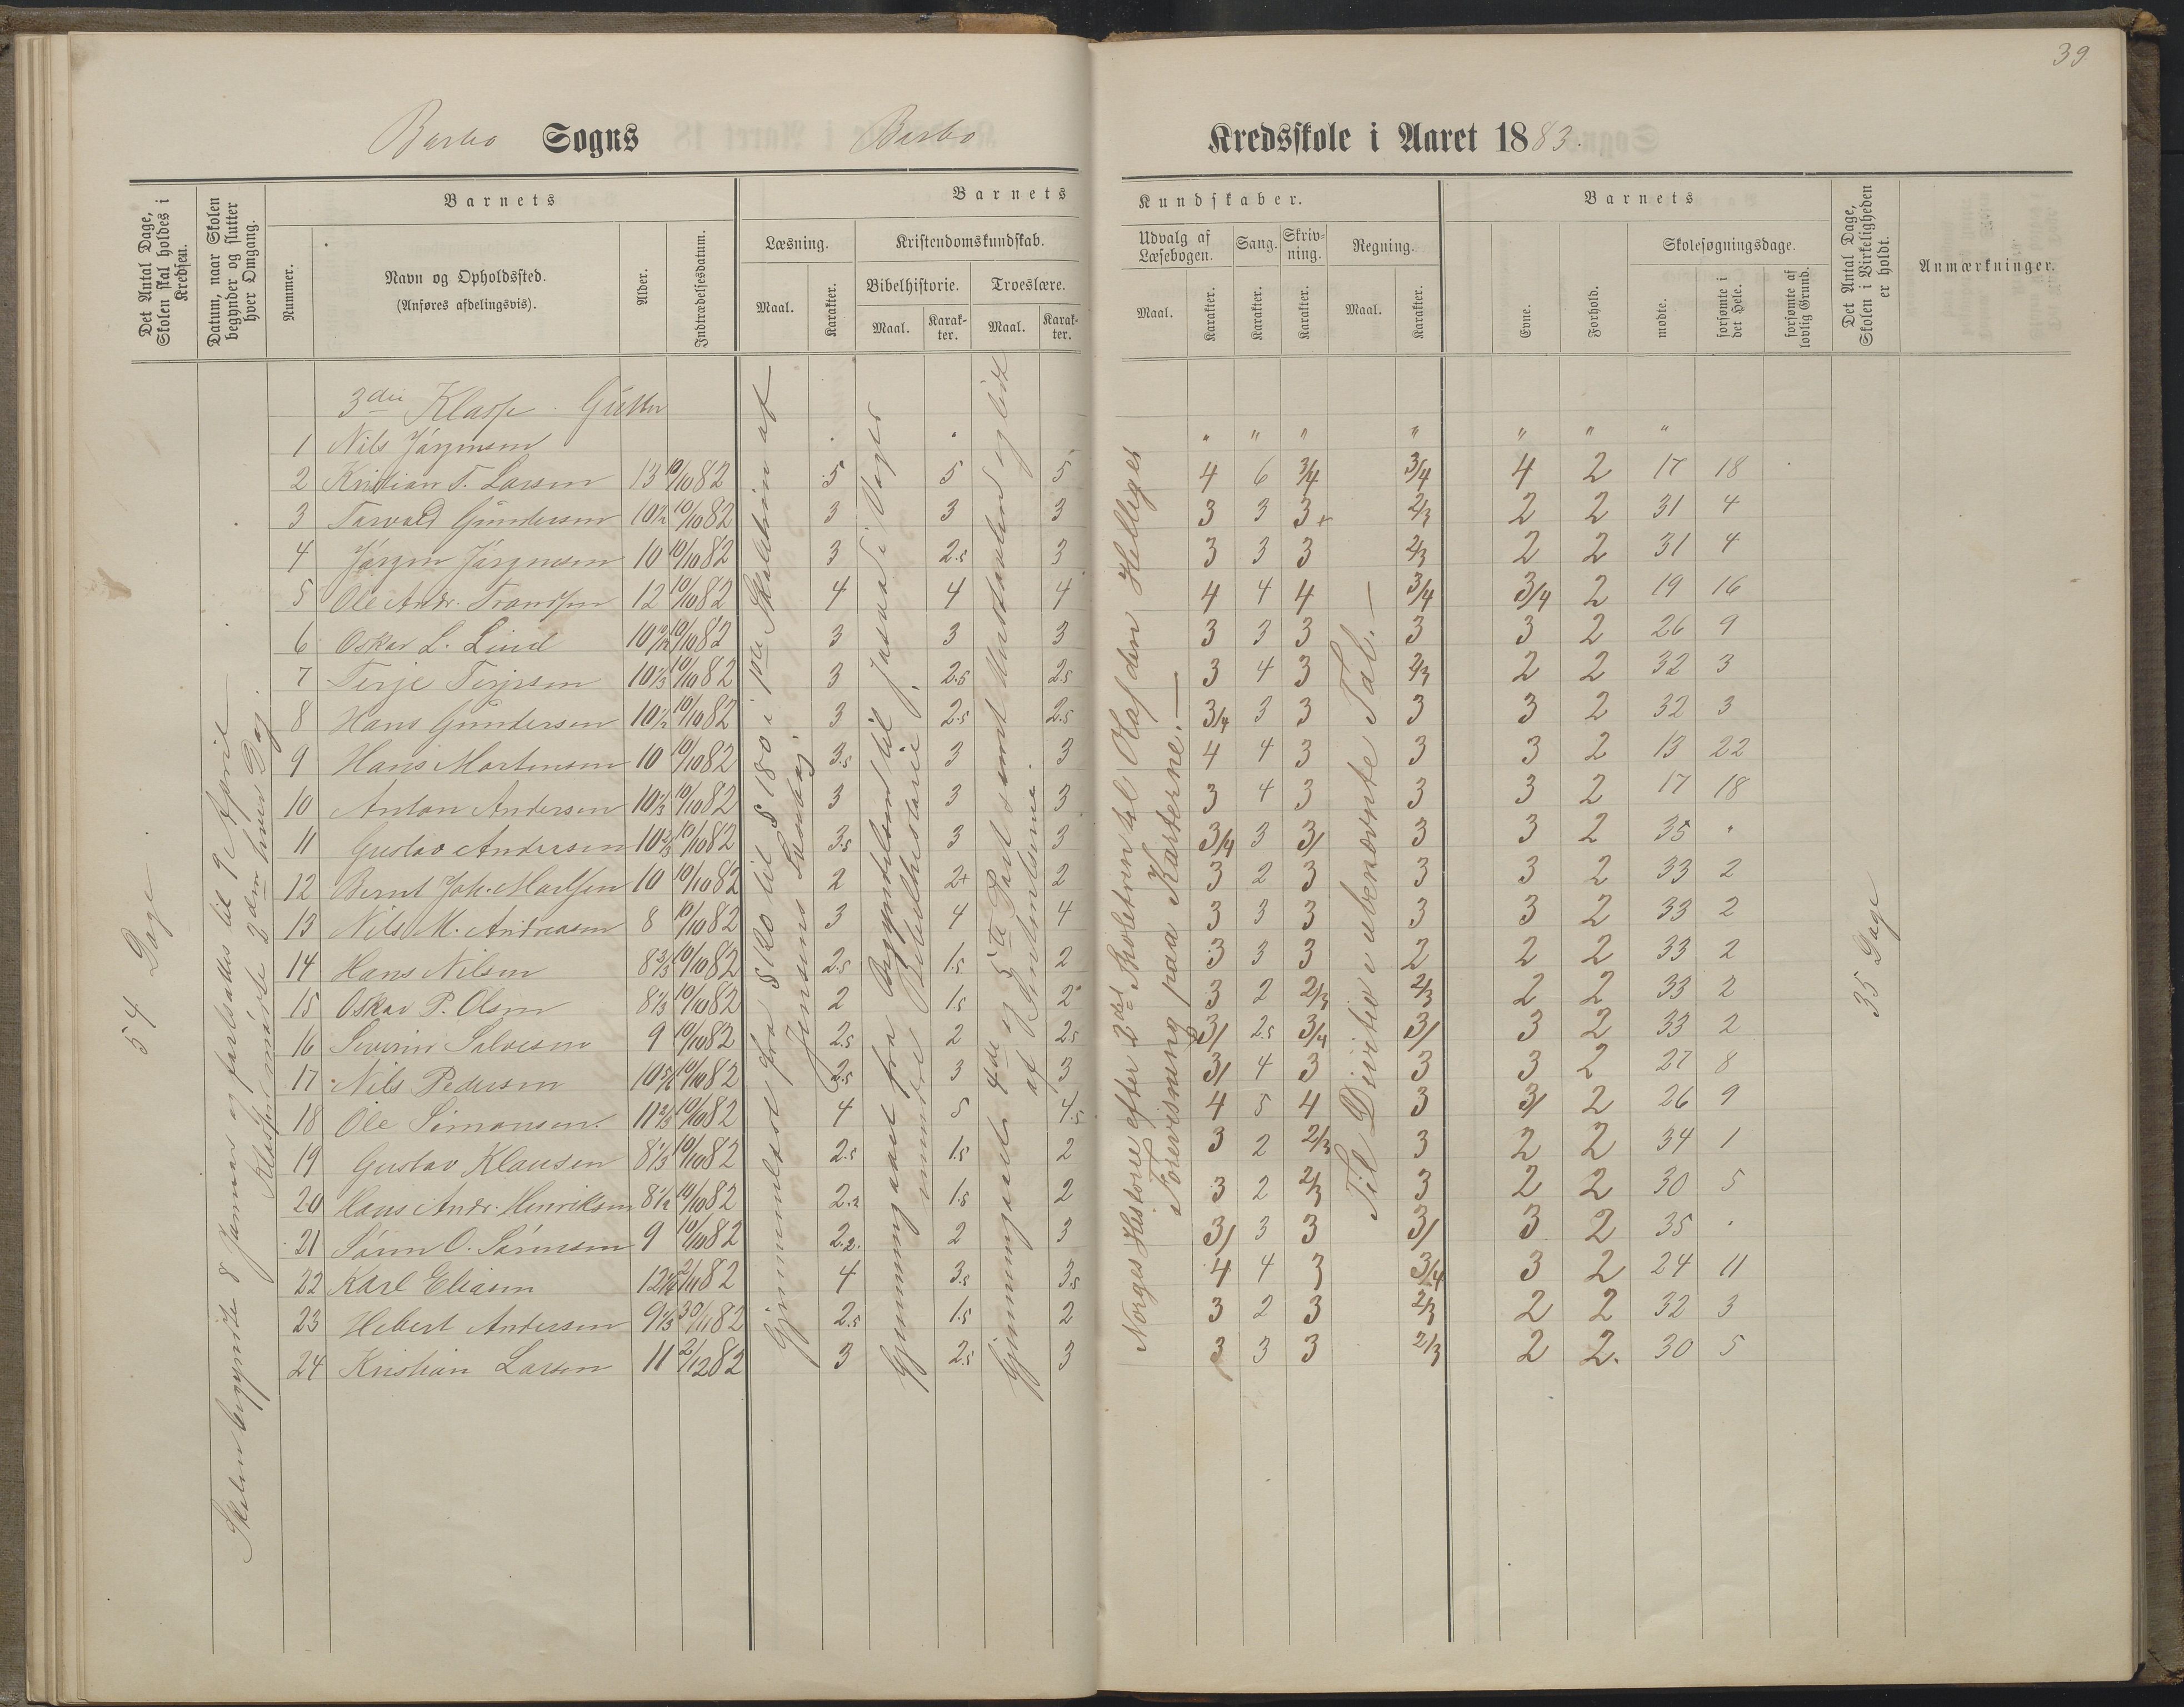 39
Barbo Sogns Barbo Kredsskole i Aaret 1883.
Det Antal Dage, Skolen skal holdes i Kredsen.
Datum, naar Skolen begynder og slutter hver Omgang.
Barnets
Nummer.
Navn og Opholdssted.
(Anføres afdelingsvis).
Alder.
Indtrædelsesdatum.
Barnets Kundskaber.
Læsning.
Maal.
Karakter.
Kristendomskundskab.
Bibelhistorie.
Maal.
Karakter.
Troeslære.
Maal.
Karakter.
Udvalg af Læsebogen.
Maal.
Karakter.
Sang.
Karakter.
Skrivning.
Karakter.
Regning.
Maal.
Karakter.
Barnets
Evne.
Forhold.
Skolesøgningsdage.
mødte.
forsømte i det Hele.
forsømte af lovlig Grund.
Det Antal Dage, Skolen i Virkeligheden er holdt.
Anmærkninger.
54 Dage
Skolen begyndte 8 Januar og fortsattes til 9 April
Klassen mødte 2den hver Dag.
Gjennemlæst fra § 120 til § 180 i 1ste Skoletrin af
Jensens Læsebog.
Gjennemgaaet fra Begyndelsen til Josva i Vogts
mindre Bibelhistorie
Gjennemgaaet 4de og 5te Part samt
af
Norges Historie efter 2det Skoletrin til Olaf den Hellige
Forevisning paa Karterne.—
Til Divisio i ubenævnte Tal.—
35 Dage
3die Klasse. Gutter
1 Nils Jörgensen " " " " " " "
2 Kristian T. Larsen 13 10/10 82 5 5 5 4 6 3/4 3/4 4 2 17 18
3 Torvald Gundersen 10½ 10/10 82 3 3 3 3 3 3+ 2/3 2 2 31 4
4 Jörgen Jörgensen 10 10/10 82 3 2.5 3 3 3 3 2/3 2 2 31 4
5 Ole Andr. Trondsen 12 10/10 82 4 4 4 4 4 4 3/4 3/4 2 19 16
6 Oskar L. Lind 10 10/10 82 3 3 3 3 3 3 3 3 2 26 9
7 Terje Terjesen 10⅓ 10/10 82 3 2.5 2.5 3 4 3 2/3 2 2 32 3
8 Hans Gundersen 10½ 10/10 82 3 2.5 2.5 3/4 3 3 3 3 2 32 3
9 Hans Mortensen 10 10/10 82 3.5 3 3 4 4 3 3 3 2 13 22
10 Anton Andersen 10⅓ 10/10 82 3 3 3 3 4 3 3 3 2 17 18
11 Gustav Andersen 10⅔ 10/10 82 3.5 3 3 3/4 3 3/ 3 3 2 35 "
12 Bernt Joh. 10 10/10 82 2 2+ 2 3 2 3 3 3 2 33 2
13 Nils M. Andreasen 8 10/10 82 3 4 4 3 3 3 3 3 2 33 2
14 Hans Nilsen 8⅔ 10/10 82 2.5 1.5 2 3 3 3 2 2 2 33 2
15 Oskar P. Olsen 8⅓ 10/10 82 2 1.5 2 3 2 2/3 2/3 2 2 33 2
16 Severin Salvesen 9 10/10 82 2.5 2 2.5 3/ 2.5 3/4 3/ 3 2 33 2
17 Nils Pedersen 10 10/10 82 2.5 3 3 3/ 4 3 3 3 2 27 8
18 Ole Simonsen. 11⅔ 10/10 82 4 5 4.5 4 5 4 3 3/ 2 26 9
19 Gustav Klausen 8⅓ 10/10 82 2.5 1.5 2 3 2 2/3 3 2 2 34 1
20 Hans Andr. Henriksen 8½ 10/10 82 2.2 1.5 2 3 2 2/3 3 2 2 30 5
21 Sören O. Sörensen 9 10/10 82 2.2. 2 3 3/ 3 3 3/ 3 2 35 "
22 Karl Eliasen 12 2/11 82 4 3.5 3.5 4 4 3 3/4 3 2 24 11
23 Hebert Andersen 9⅓ 30/11 82 2.5 1.5 2 3 2 3 2/3 2 2 32 3
24 Kristian Larsen 11 2/12 82 3 2.5 3 3 3 3 2/3 2 2. 30 5